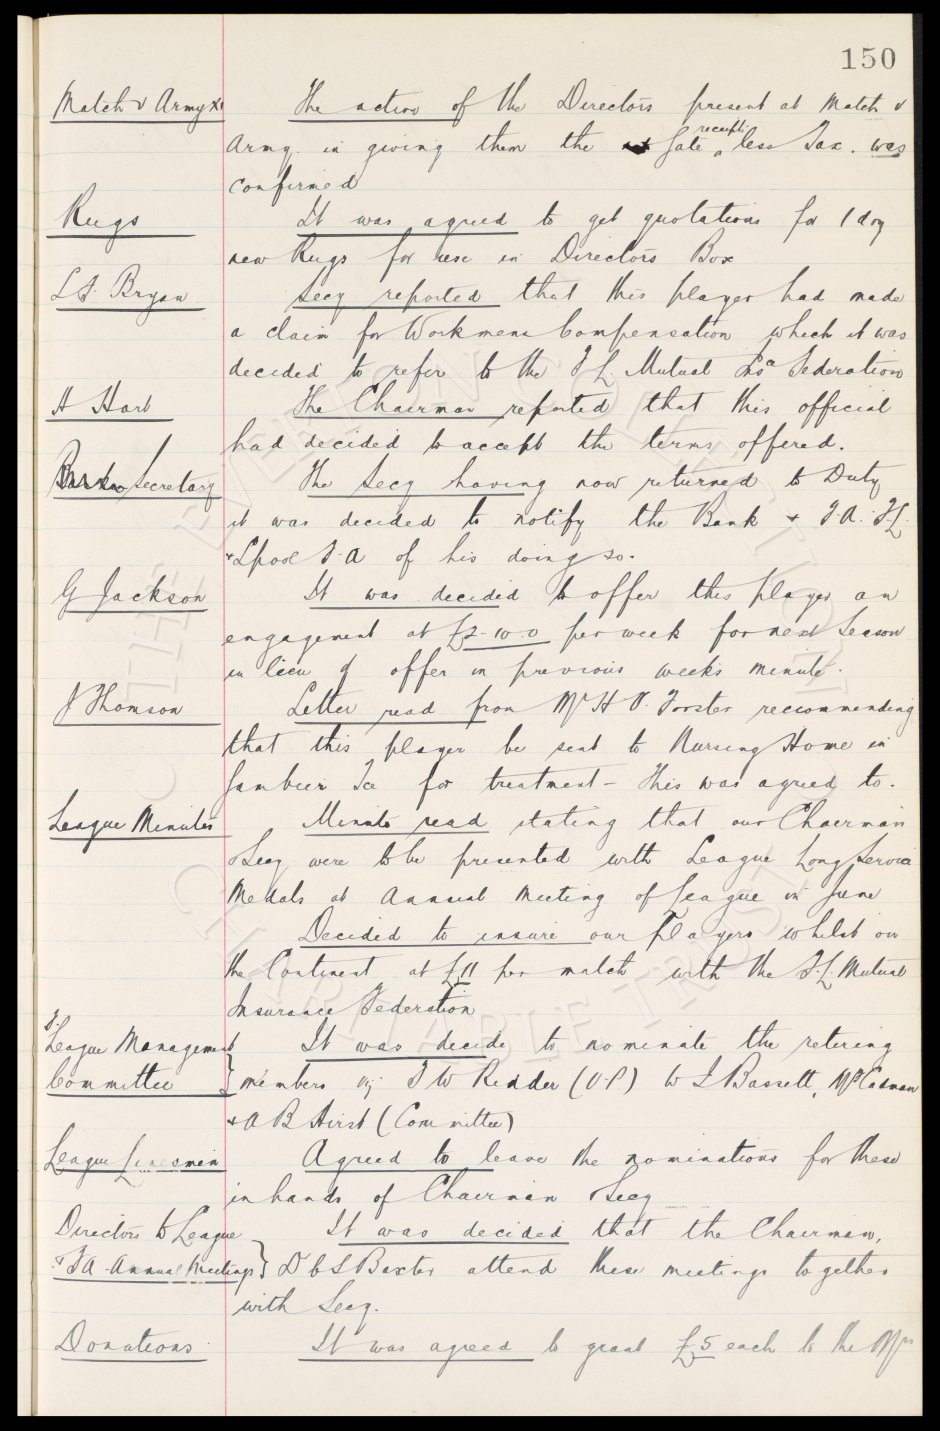 150
Match v Army XI The action of the Directors present at Match v
Army in giving them the Gate receipts less Tax. was
confirmed
Rugs It was agreed to get quotations for 1 doz
new Rugs for use in Directors Box
Secy reported that this player had made
a claim for Workmens Compensation which it was
decided to refer to the F L Mutual Insce Federation
H Hart The Chairman reported that this official
had decided to accept the terms offered.
Secretary The Secy having now returned to Duty
it was decided to notify the Bank & F.A. F.L.
& Lpool F.A of his doing so.
G Jackson It was decided to offer this player an
engagement at £2-10-0 per week for next Season
in lieu of offer in previous weeks minute.
J Thomson Letter read from Mr H. V. Forster recommending
that this player be sent to Nursing Home in
Gambier Tce for treatment - This was agreed to.
League Minutes Minute read stating that our Chairman
& Secy were to be presented with League Long Service
Medals at Annual Meeting of League in June
Decided to insure our players whilst on
the Continent at £11 per match with the F.L. Mutual
Insurance Federation
F. League Management It was decide to nominate the retiring
Committee } members viz T W Redder (V-P) W I Bassett,
& A B Hirst (Committee)
League Linesmen Agreed to leave the nominations for these
in hands of Chairman & Secy
Directors to League It was decided that the Chairman,
& FA Annual Meetings } D C S Baxter attend these meetings together
with Secy.
Donations It was agreed to grant £5 each to the